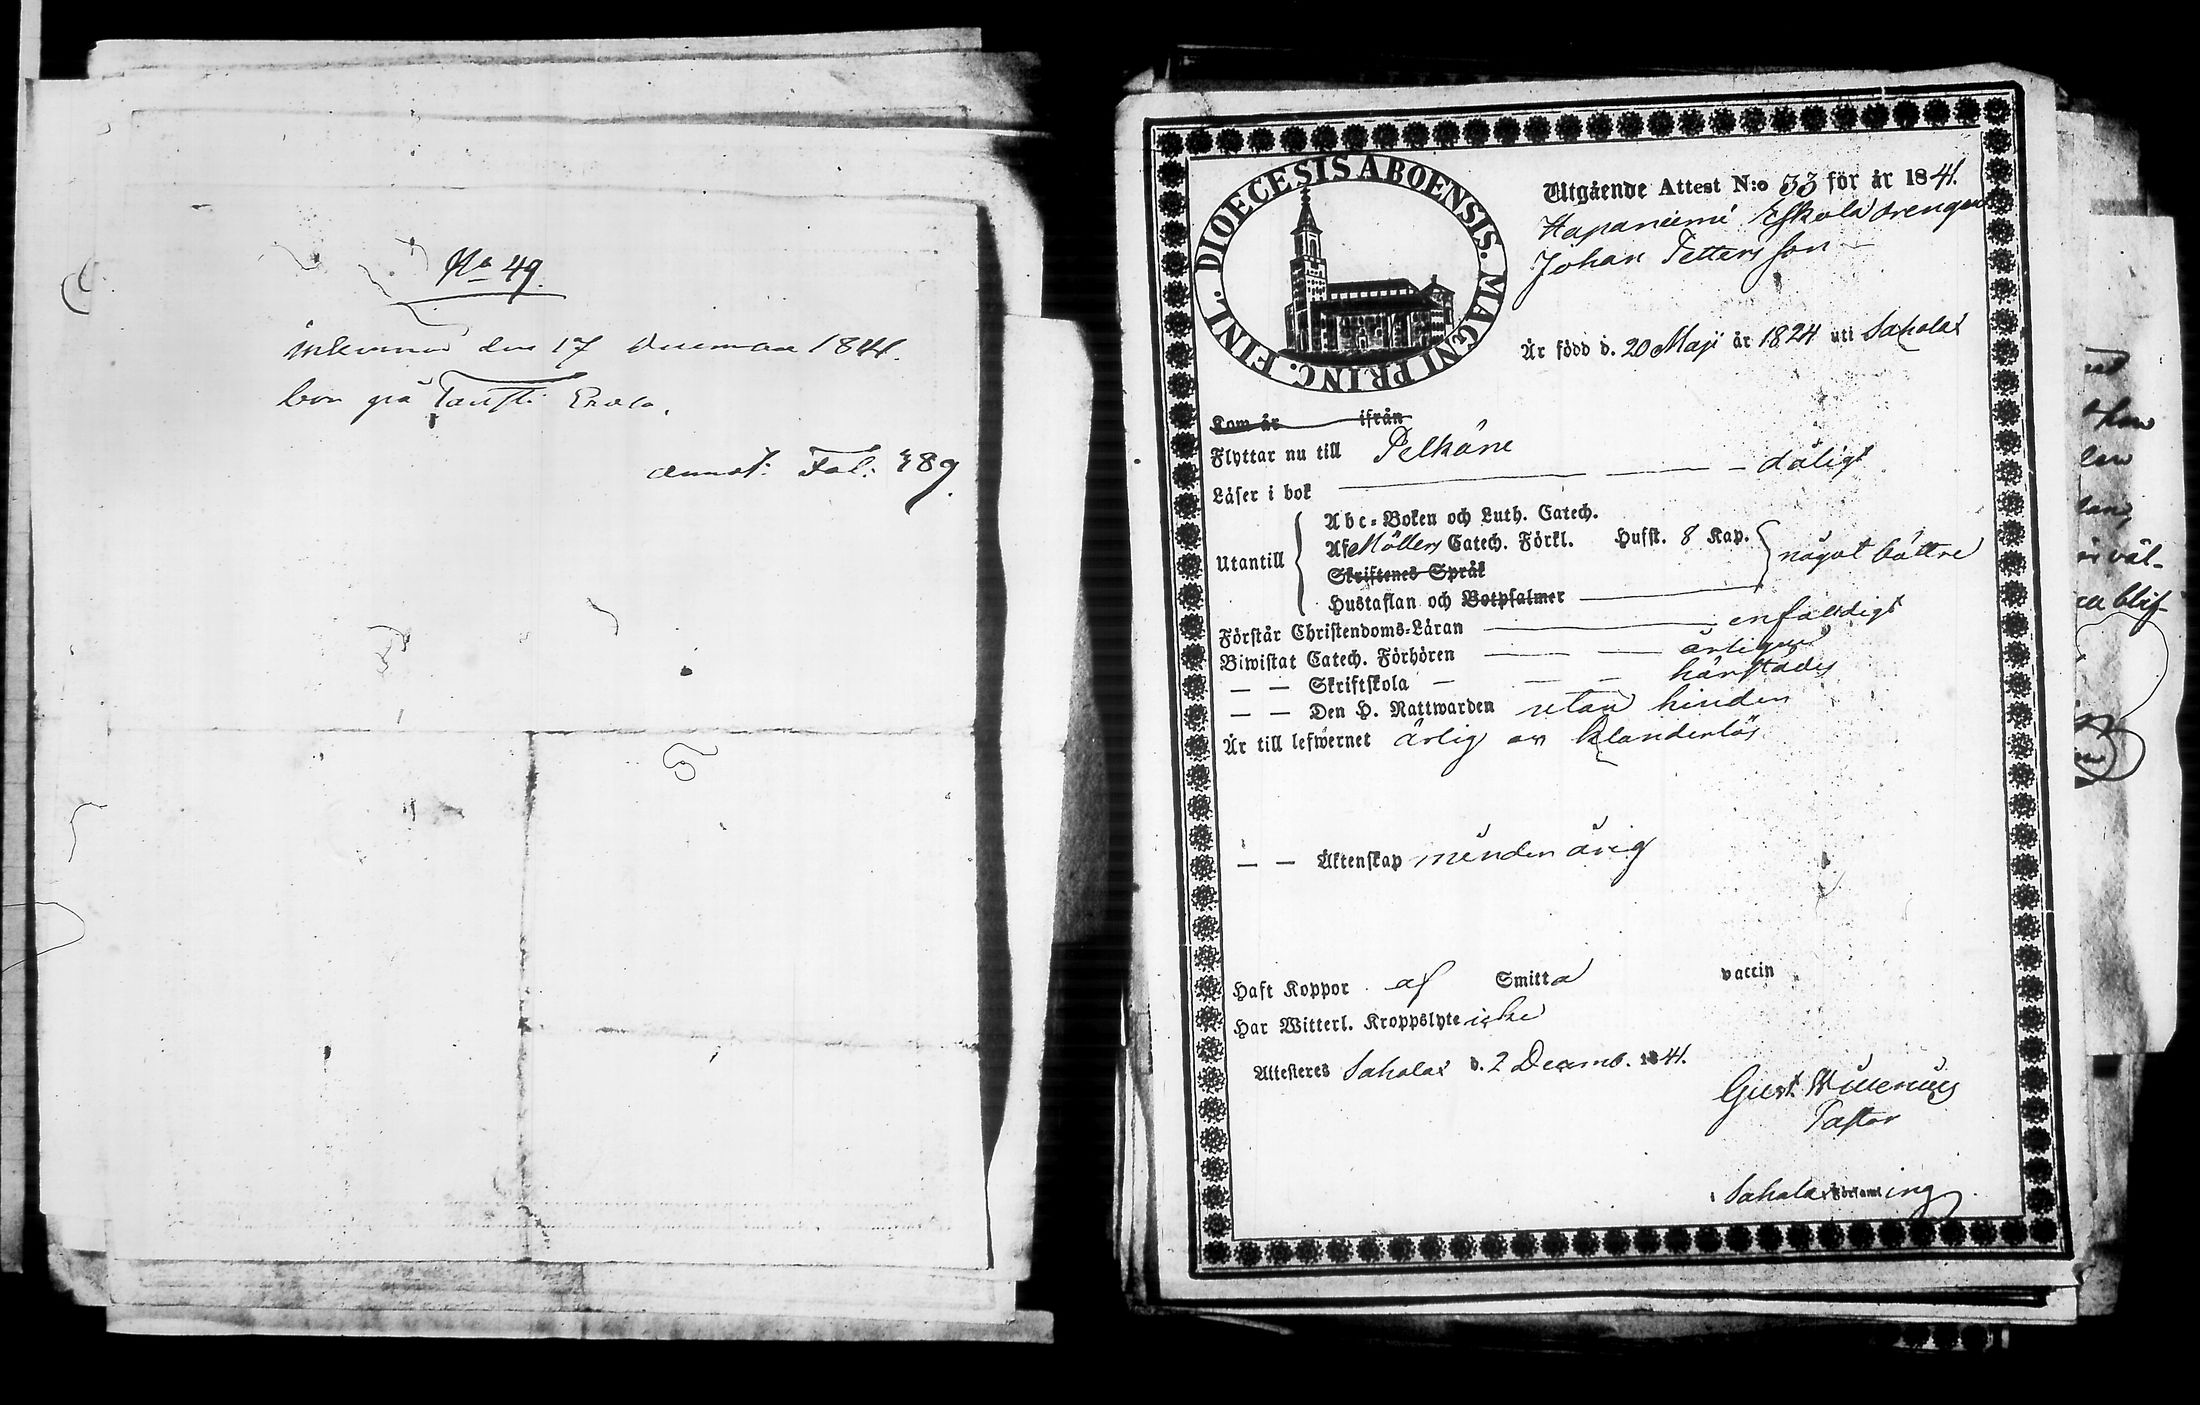 No 49.
inkommen den 17 December 1841.
bor på Erola.
annot: Fol: 389.
DIOECESIS ABOENSIS. MAGNI PRINC. FINL.
Utgående Attest N:o 33 för år 1841.
Hapaniemi Eskola drengen
Johan Pettersson
Är född d. 20 Maji år 1824 uti Sahalax
Kom år ifrån
Flyttar nu till Pelkäne
Läser i bok — — — dåligt
Abc-Boken och Luth. Catech.
Utantill Af Möllers Catech. Förkl. Husst. 8 Kap. något bättre
Skriftenes Språk
Hustaflan och Botpsalmer —
Förstår Christendoms-Läran — enfaldigt
Biwistat Catech. Förhören — — årligen
— — Skriftskola — — — härstädes
— — Den H. Nattwarden utan hinder
Är till lefwernet ärlig och klanderlös
— — Äktenskap minderårig
Haft Koppor af Smitta vaccin
Har Witterl. Kroppslyte icke
Attesteres Sahalax d. 2 Decemb. 1841.
Gust.
Pastor
i Sahalax Församling.